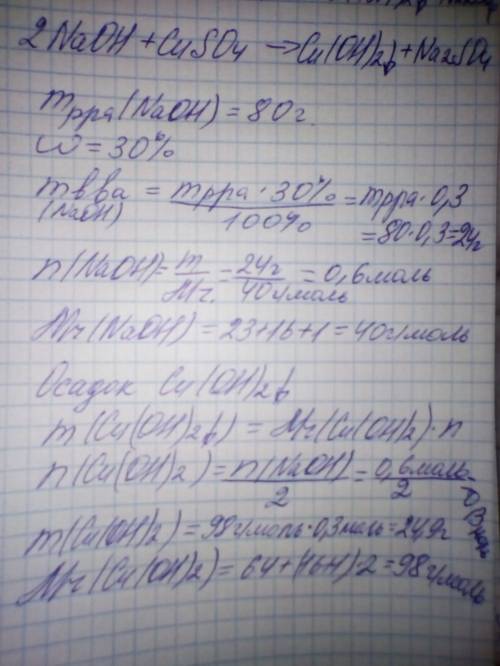 2NaOH + CuSO4 → Cu(OH)2↓ + Na2SO4
mрра(NaOH) = 80г.
ω = 30%
mвва (NaOH) = mрра · 30% / 100% = mрра · 0,3
= 80 · 0,3 = 24г
n(NaOH) = m / Mr = 24г / 40г/моль = 0,6моль
Mr(NaOH) = 23+16+1 = 40г/моль
Осадок Cu(OH)2↓
m(Cu(OH)2↓) = Mr(Cu(OH)2) · n
n(Cu(OH)2) = n(NaOH) / 2 = 0,6моль / 2 = 0,3моль
m(Cu(OH)2) = 98г/моль · 0,3моль = 24,9г
Mr(Cu(OH)2) = 64+(16+1)·2 = 98г/моль